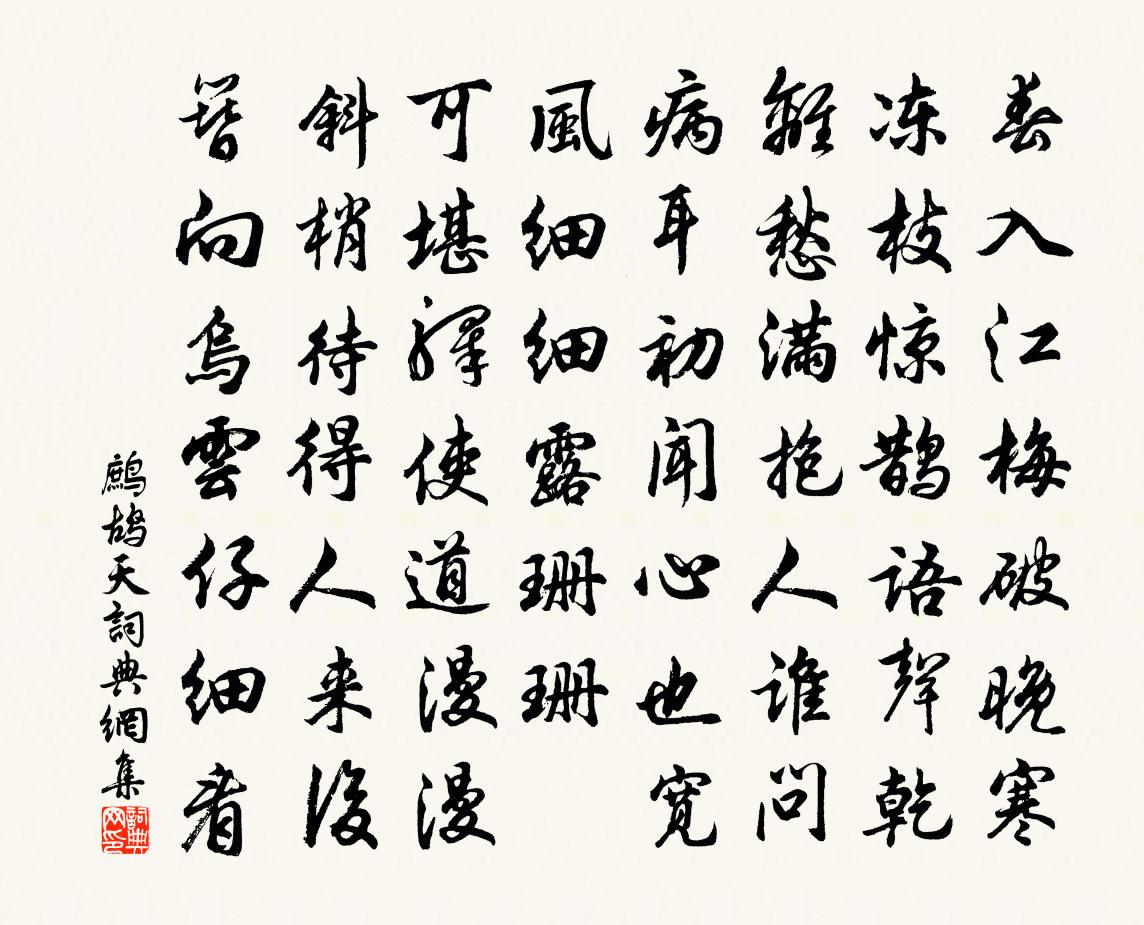 春入江梅破晚寒
冻枝惊鹊语声乾
離愁满抱人谁问
病耳初闻心也宽
風细细露珊珊
可堪驛使道漫漫
斜梢待得人来後
簪向烏雲仔细看
鷓鴣天詞典網集
詞典网印